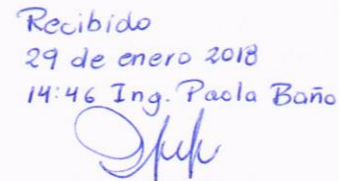 Recibido
29 de enero 2018
14:46 Ing. Paola Baño